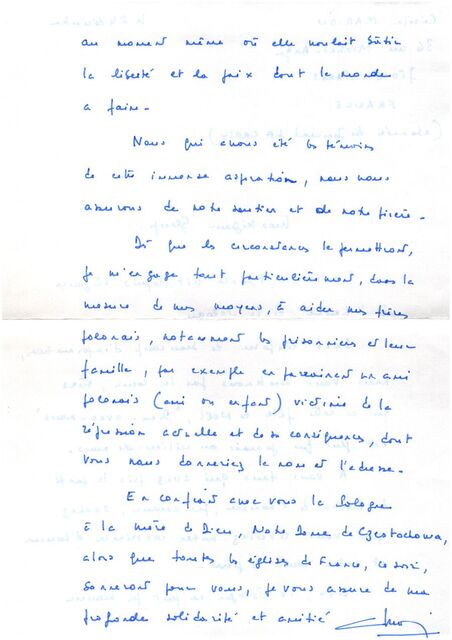 au moment même où elle voulait bâtir
la liberté et la paix dont le monde
a faim.
Nous qui avons été les témoins
de cette immense aspiration, nous vous
assurons de notre soutien et de notre prière.
Dès que les circonstances le permettront,
je m'engage tout particulièrement, dans la
mesure de mes moyens, à aider mes frères
polonais, notamment les prisonniers et leur
famille, par exemple en parrainant un ami
polonais (ami ou enfant) victime de la
répression actuelle et de ses conséquences, dont
vous nous donneriez le nom et l'adresse.
En confiant avec vous la Pologne
à la mère de Dieu, Notre Dame de Częstochowa,
alors que toutes les églises de France, ce soir,
sonneront pour vous, je vous assure de ma
profonde solidarité et amitié